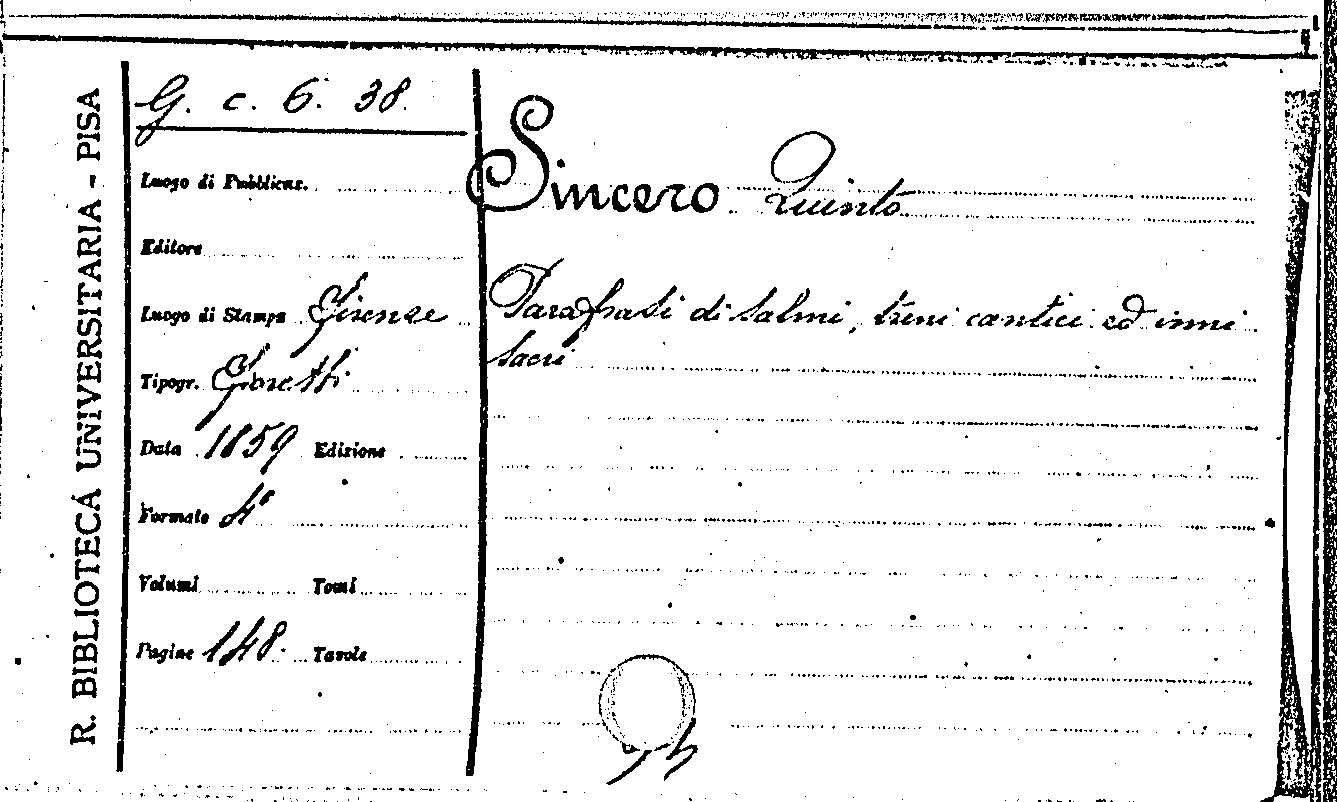 R. BIBLIOTECA UNIVERSITARIA - PISA
G. c. 6. 38.
Luogo di Pubblicaz.
Editore
Luogo di Stampa Firenze
Tipogr.
Data 1859 Edizione
Formato 4°
Volumi Tomi
Pagine 148. Tavole
Sincero Quinto
Parafrasi di salmi, treni cantici ed inni
sacri